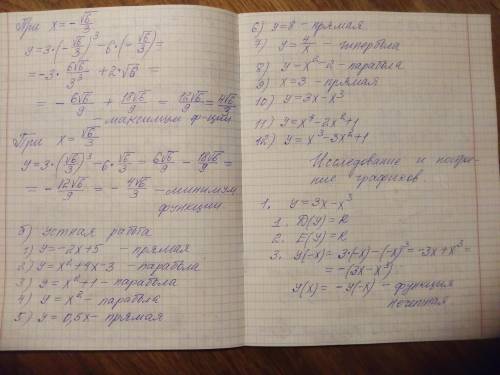 При x = -√6/3
y = 3·(-√6/3)³ - 6·(-√6/3) =
= -3· 6√6/3³ + 2·√6 =
= - 6√6/9 + 18√6/9 = 12√6/9 = 4√6/3
- максимум ф-ции
При x = √6/3
y = 3·(√6/3)³ - 6·√6/3 = 6√6/9 - 18√6/9 =
= - 12√6/9 = - 4√6/3 - минимум
функции
б) Устная работа
1) y = -2x + 5 - прямая
2) y = x² + 4x - 3 - парабола
3) y = x² + 1 - парабола
4) y = x² - парабола
5) y = 0,5x - прямая
6) y = 8 - прямая
7) y = 4/x - гипербола
8) y = x² - 2 - парабола
9) x = 3 - прямая
10) y = 3x - x³
11) y = x⁴ - 2x² + 1
12) y = x³ - 3x² + 1
Исследование и построе-
ние графиков.
1. y = 3x - x³
1. D(y) = R
2. E(y) = R
3. y(-x) = 3·(-x) - (-x)³ = -3x + x³ =
= -(3x - x³)
y(x) = -y(-x) - функция
нечетная